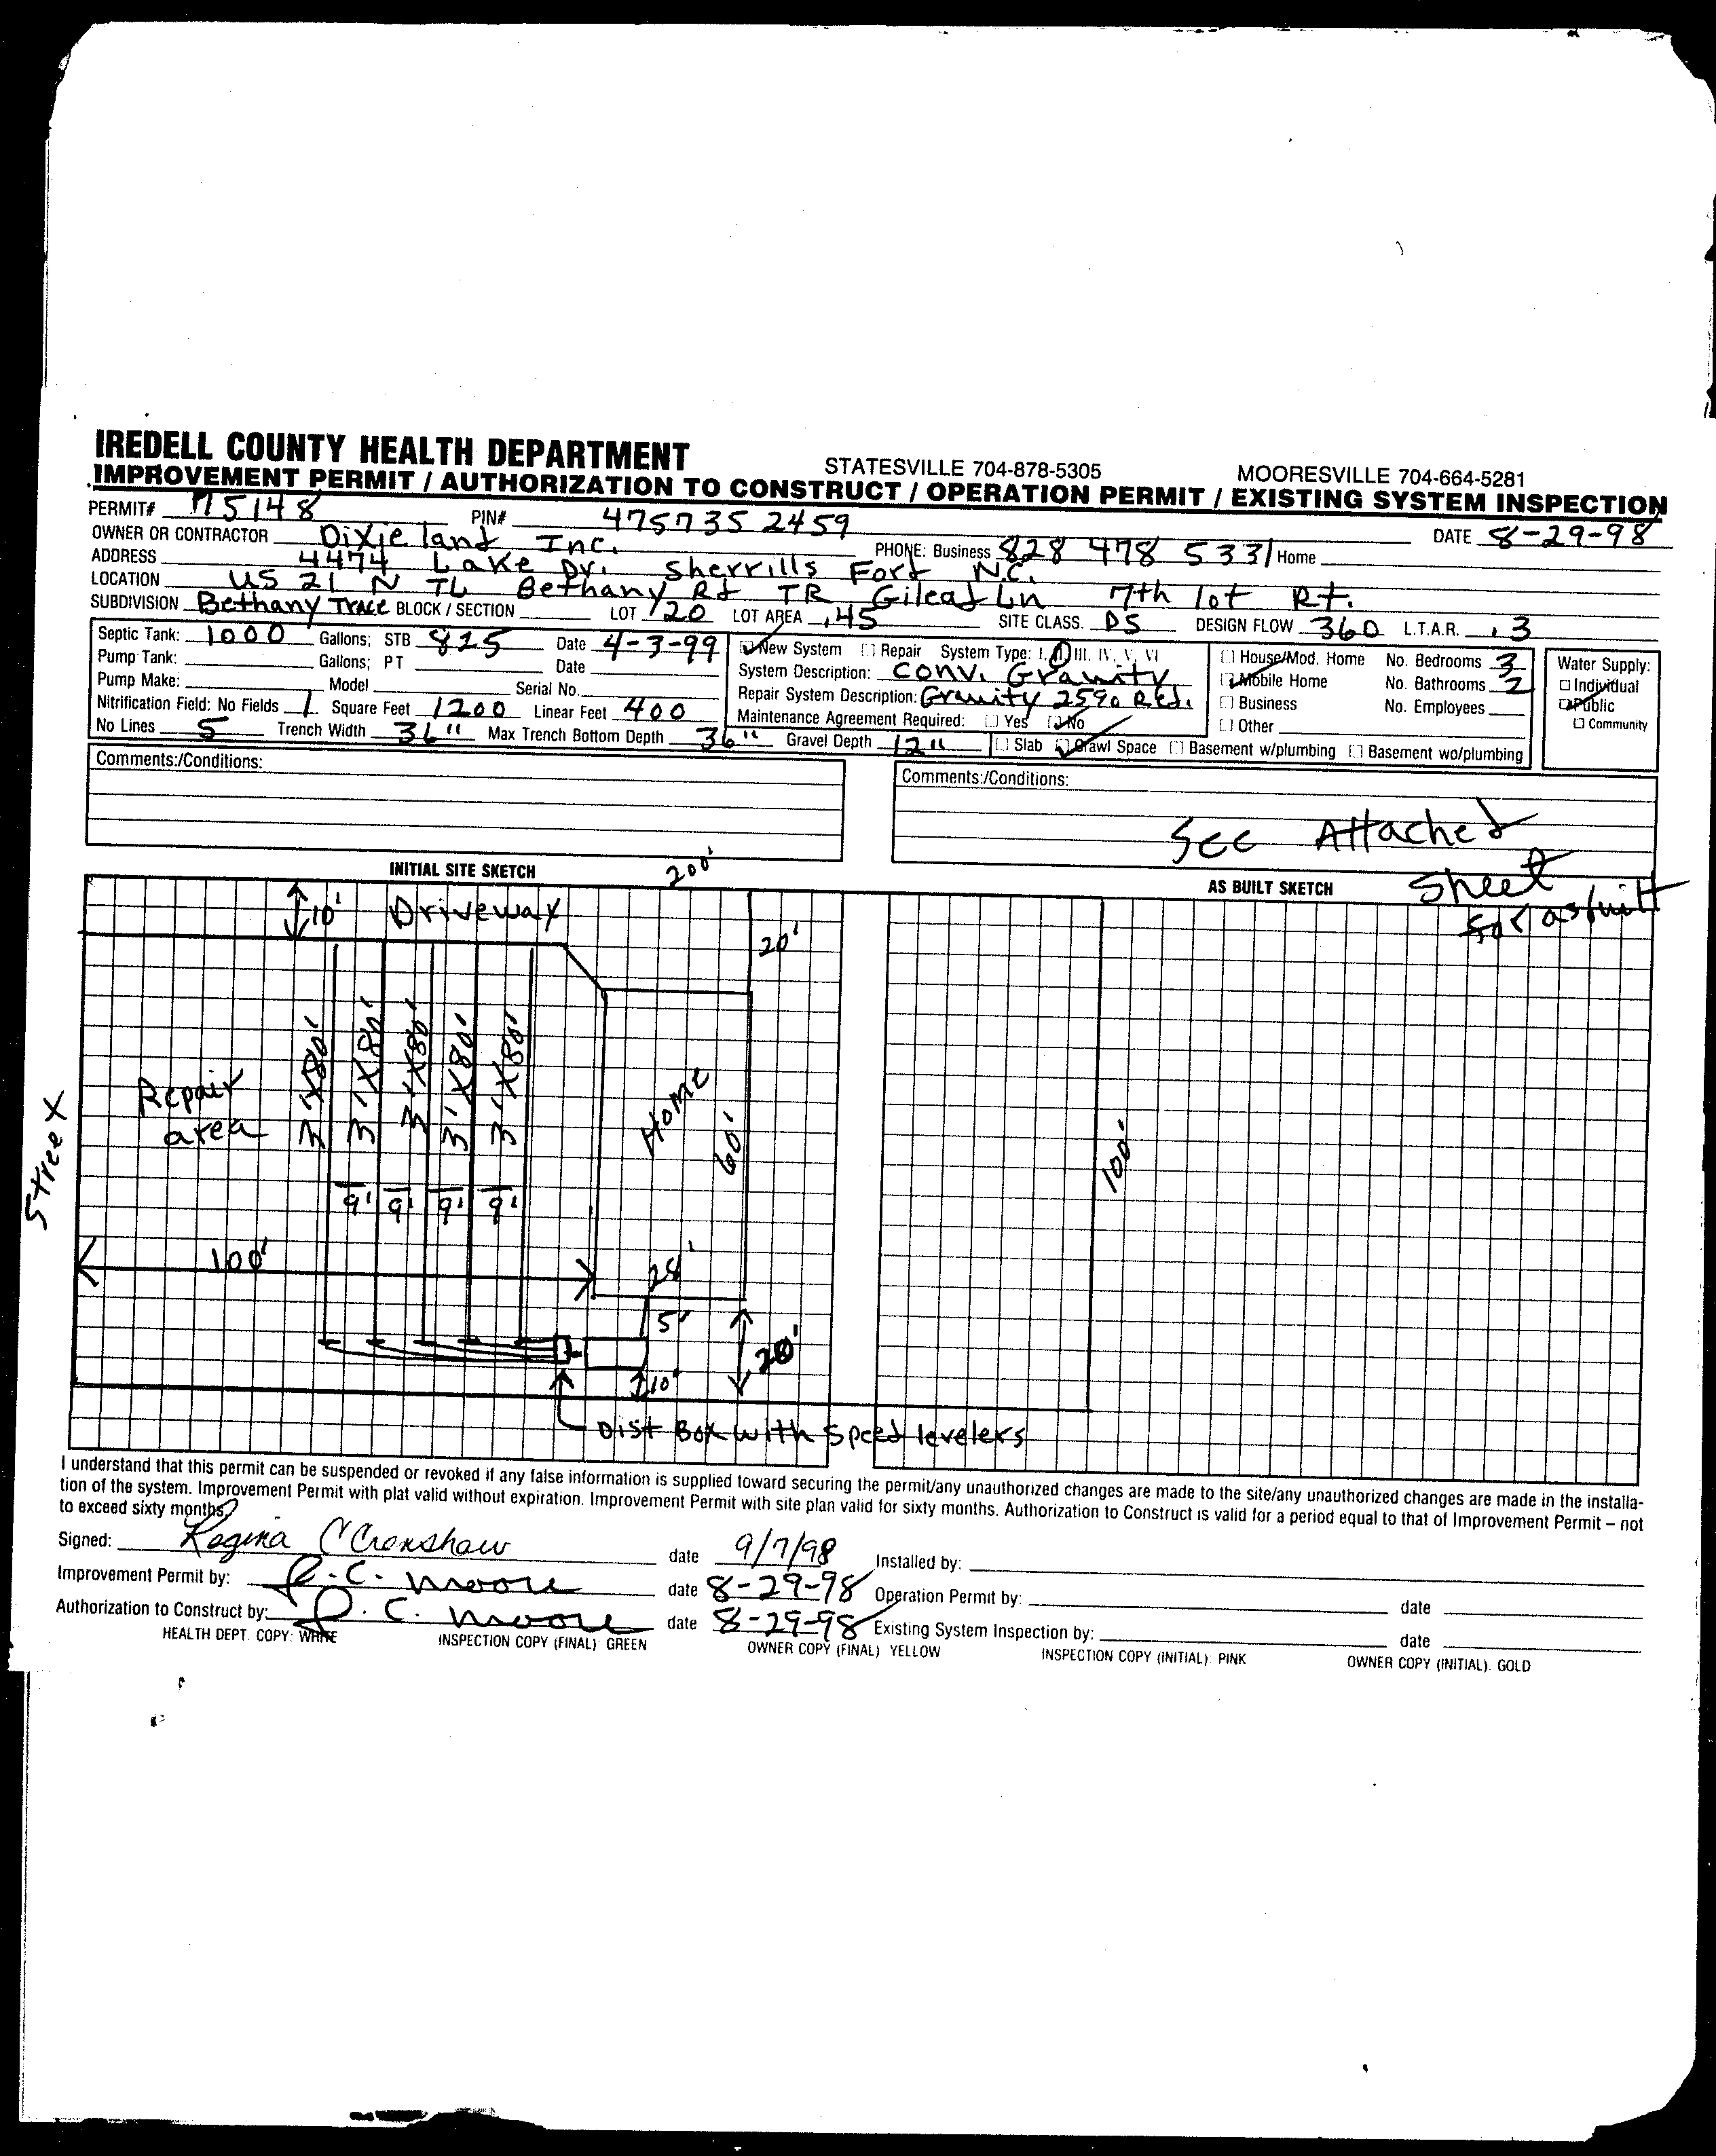 IREDELL COUNTY HEALTH DEPARTMENT STATESVILLE 704-878-5305 MOORESVILLE 704-664-5281
IMPROVEMENT PERMIT / AUTHORIZATION TO CONSTRUCT / OPERATION PERMIT / EXISTING SYSTEM INSPECTION
PERMIT# 75148 PIN# 4757352459 DATE 8-29-98
OWNER OR CONTRACTOR Dixieland Inc. PHONE: Business 828 478 5331 Home
ADDRESS 4474 Lake Dr. Sherrills Ford N.C.
LOCATION US 21 N TL Bethany Rd TR Gilead Ln 7th lot Rt.
SUBDIVISION Bethany Trace BLOCK / SECTION LOT 120 LOT AREA .45 SITE CLASS. PS DESIGN FLOW 360 L.T.A.R. .3
Septic Tank: 1000 Gallons; STB 825 Date 4-3-99 New System Repair System Type: I, II, III, IV, V, VI House/Mod. Home No. Bedrooms 3 Water Supply:
Pump Tank: Gallons; PT Date System Description: Conv. Gravity Mobile Home No. Bathrooms 2 Individual
Pump Make: Model Serial No. Repair System Description: Gravity 25% Red. Business No. Employees Public
Nitrification Field: No Fields 1 Square Feet 1200 Linear Feet 400 Maintenance Agreement Required: Yes No Other Community
No Lines 5 Trench Width 36" Max Trench Bottom Depth 36" Gravel Depth 12" Slab Crawl Space Basement w/plumbing Basement wo/plumbing
Comments:/Conditions: Comments:/Conditions:
See Attached
Sheet
for asbuilt
INITIAL SITE SKETCH 200' AS BUILT SKETCH
10' Driveway
20'
3'X80' 3'X80' 3'X80' 3'X80' 3'X80'
Repair
area
Home
60'
100'
Street
9' 9' 9' 9'
100' 28'
5'
20'
10'
Dist Box with Speed levelers
I understand that this permit can be suspended or revoked if any false information is supplied toward securing the permit/any unauthorized changes are made to the site/any unauthorized changes are made in the installa-
tion of the system. Improvement Permit with plat valid without expiration. Improvement Permit with site plan valid for sixty months. Authorization to Construct is valid for a period equal to that of Improvement Permit – not
to exceed sixty months.
Signed: Regina C Crenshaw date 9/7/98 Installed by:
Improvement Permit by: R.C. Moore date 8-29-98 Operation Permit by: date
Authorization to Construct by: R.C. Moore date 8-29-98 Existing System Inspection by: date
HEALTH DEPT. COPY: WHITE INSPECTION COPY (FINAL): GREEN OWNER COPY (FINAL) YELLOW INSPECTION COPY (INITIAL): PINK OWNER COPY (INITIAL). GOLD